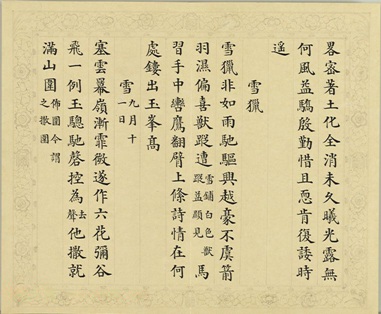 畧密著土化全消未久曦光露無
何風益驕殷勤惜且恧肯復諉時
遙
雪獵
雪獵非如雨馳驅興越豪不虞箭
羽濕偏喜獸蹤遭雪鋪白色獸蹤益顯見馬
習手中轡鷹翻臂上條詩情在何
處鏤出玉峯高
雪九月十一日
塞雲羃嶺漸霏微遂作六花彌谷
飛一例玉驄馳磬控為去聲他撒就
滿山圍佈圍今謂之撒圍